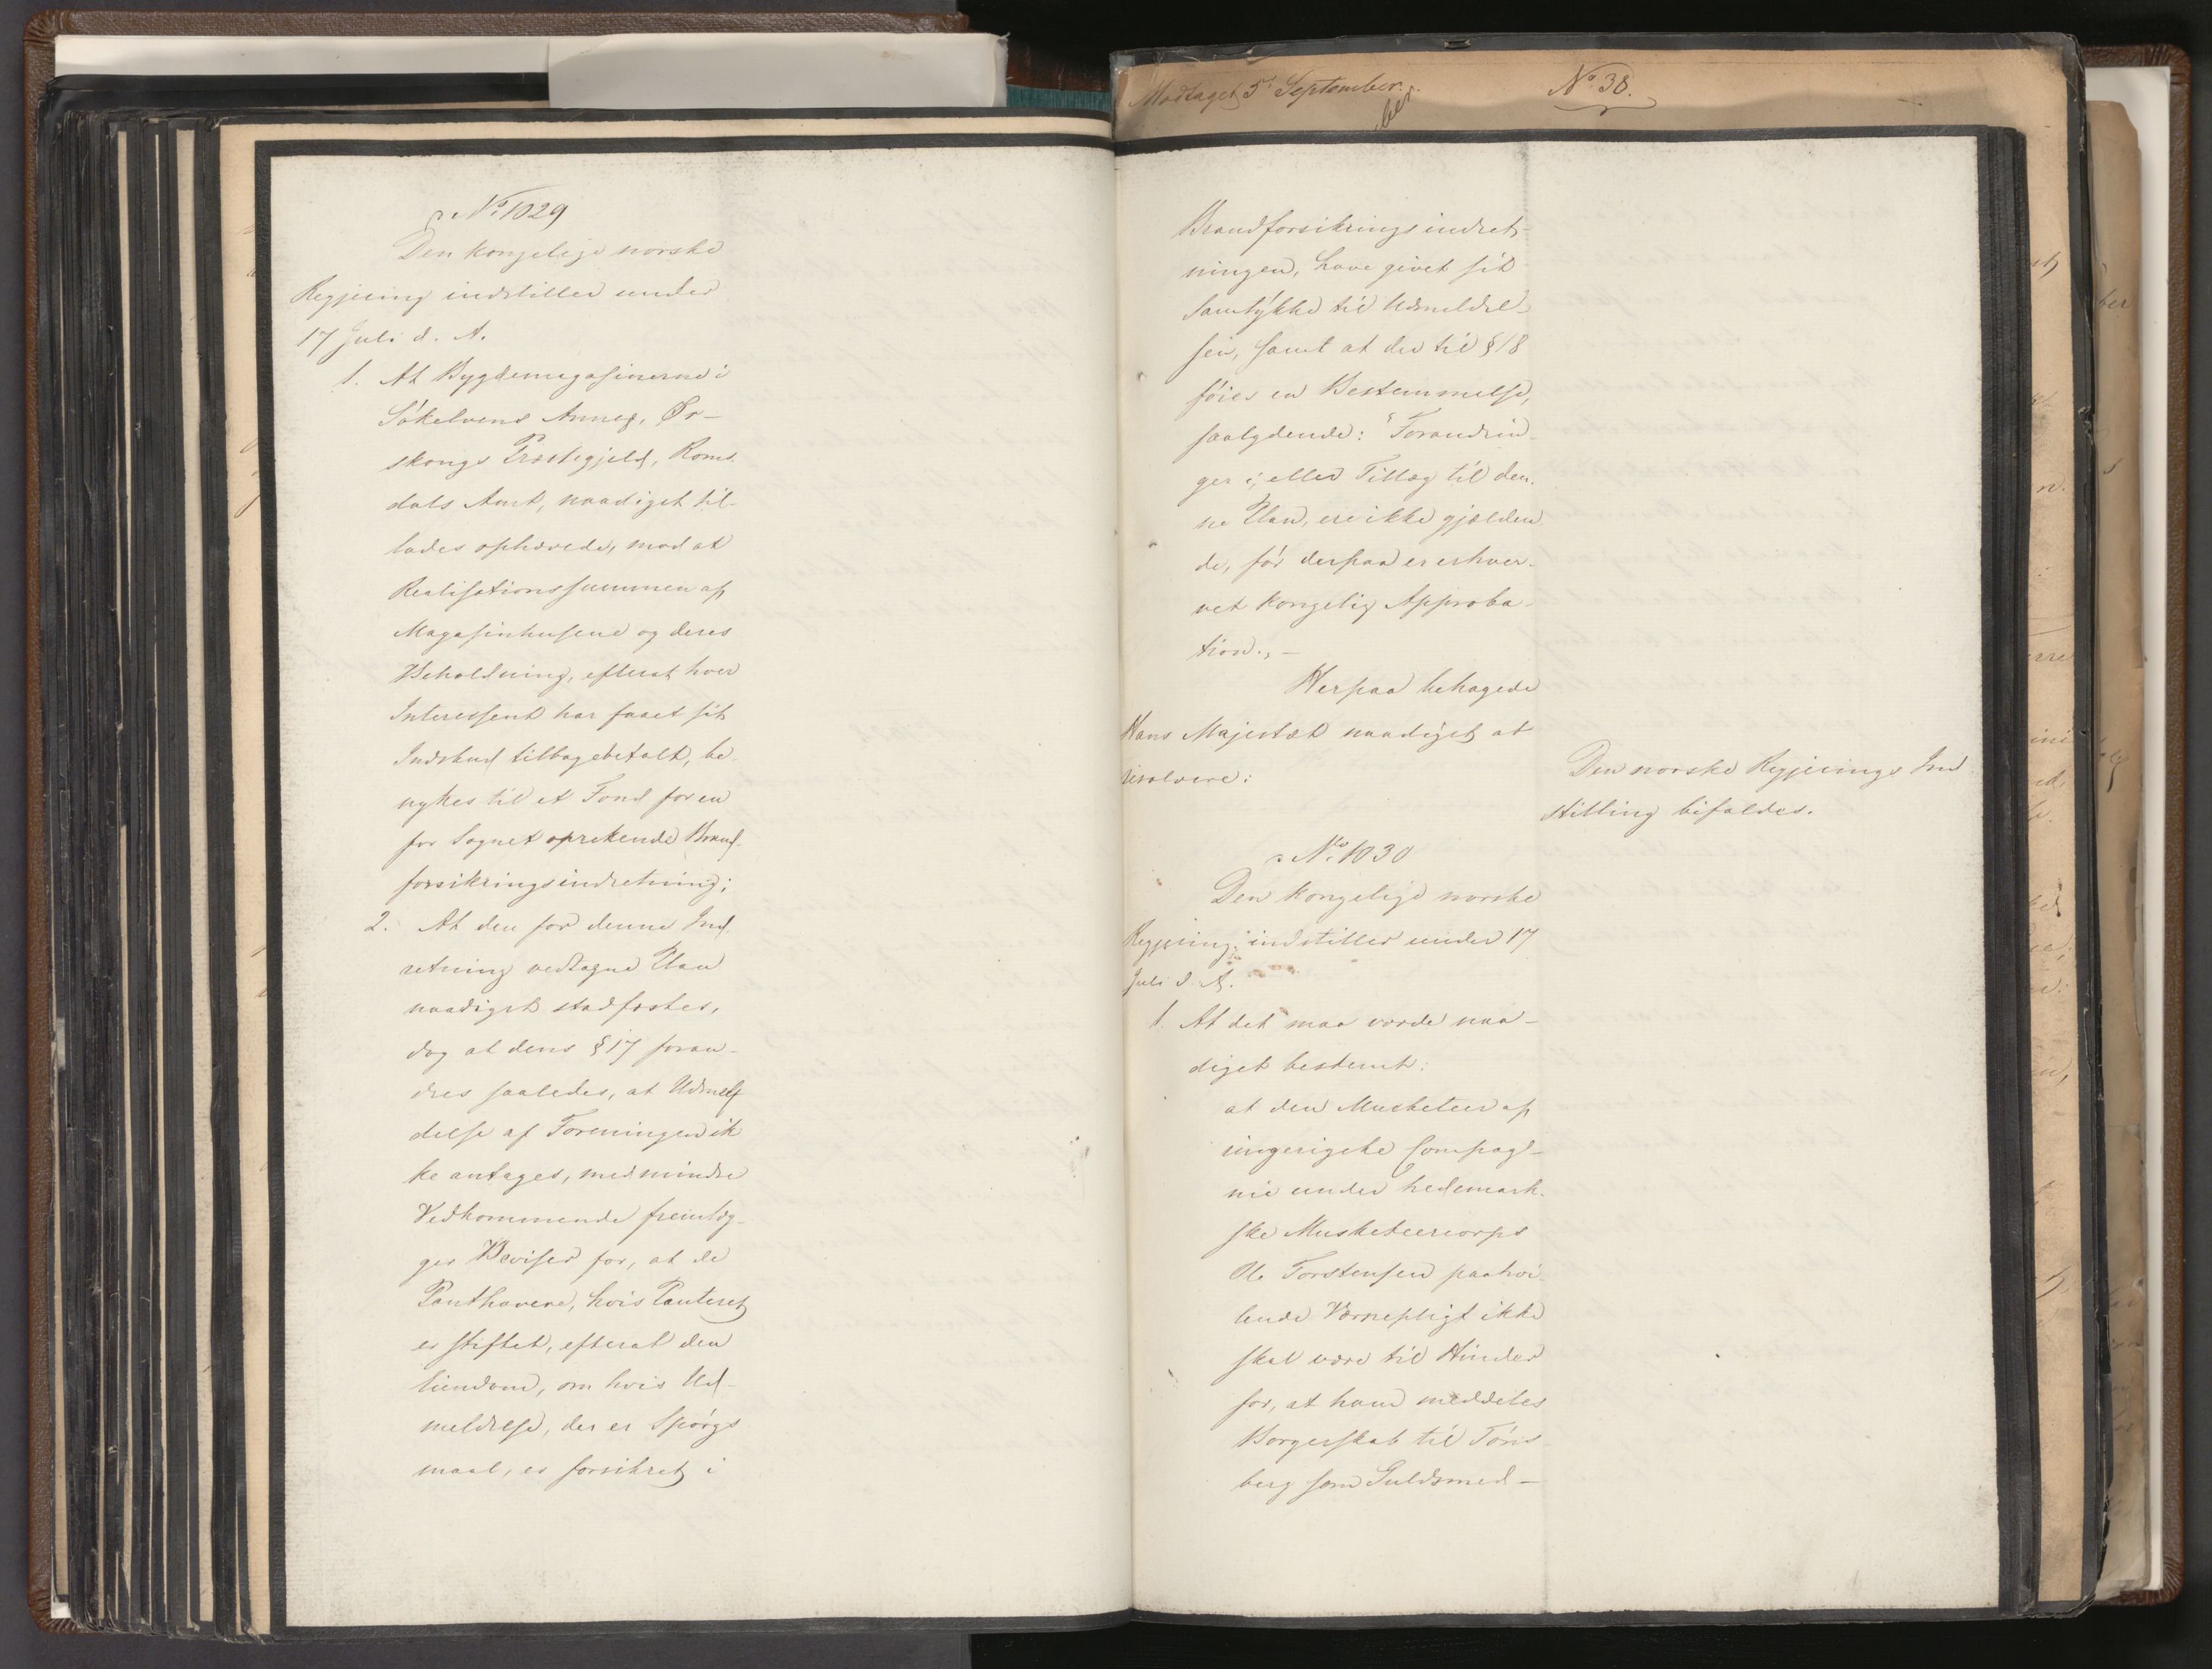 No 1029
Den kongelige norske
Regjering indstiller under
17 Juli d. A.
1. At Bygdemagasinerne i
Søkelvens Annex, Ør-
skougs Præstegjeld, Roms-
dals Amt, naadigst til-
lades ophævede, mod at
Realisationssummen af
Magasinhusene og deres
Beholdning, efterat hver
Interessent har faaet sit
Indskud tilbagebetalt, be-
nyttes til et Fond for en
for Sognet oprettende Brand-
forsikringsindretning;
2. At den for denne Ind-
retning vedtagne Plan
naadigst stadfæstes,
dog at dens § 17 foran-
dres saaledes, at Udmel-
delse af Foreningen ik
ke antages, medmindre
Vedkommende fremlæg-
ger Beviser for, at de
Panthavere, hvis Panteret
er stiftet, efterat den
Eiendom, om hvis Ud-
meldelse, der er Spørgs
maal, er forsikret i
Modtaget 5te September.
No 38.
ber
Brandforsikringsindret-
ningen, have givet sit
Samtykke til Udmeldel-
sen, samt at der til § 18
føies en Bestemmelse,
saalydende: "Forandrin-
ger i, eller Tillæg til den-
ne Plan, ere ikke gjælden-
de, før derpaa er erhver-
vet kongelig Approba-
tion.„ —
Herpaa behagede
Hans Majestæt naadigst at
resolvere:
Den norske Regjerings Ind
stilling bifaldes.
No 1030
Den kongelige norske
Regjering indstiller under 17
Juli d. A.
1. At det maa vorde naa-
digst bestemt:
at den Musketeer af
ringerigske Compag-
nie under hedemark-
ske Musketeercorps
Ole Torstensen paahvi-
lende Værnepligt ikke
skal være til Hinder
for, at ham meddeles
Borgerskab til Töns
berg som Guldsmed-